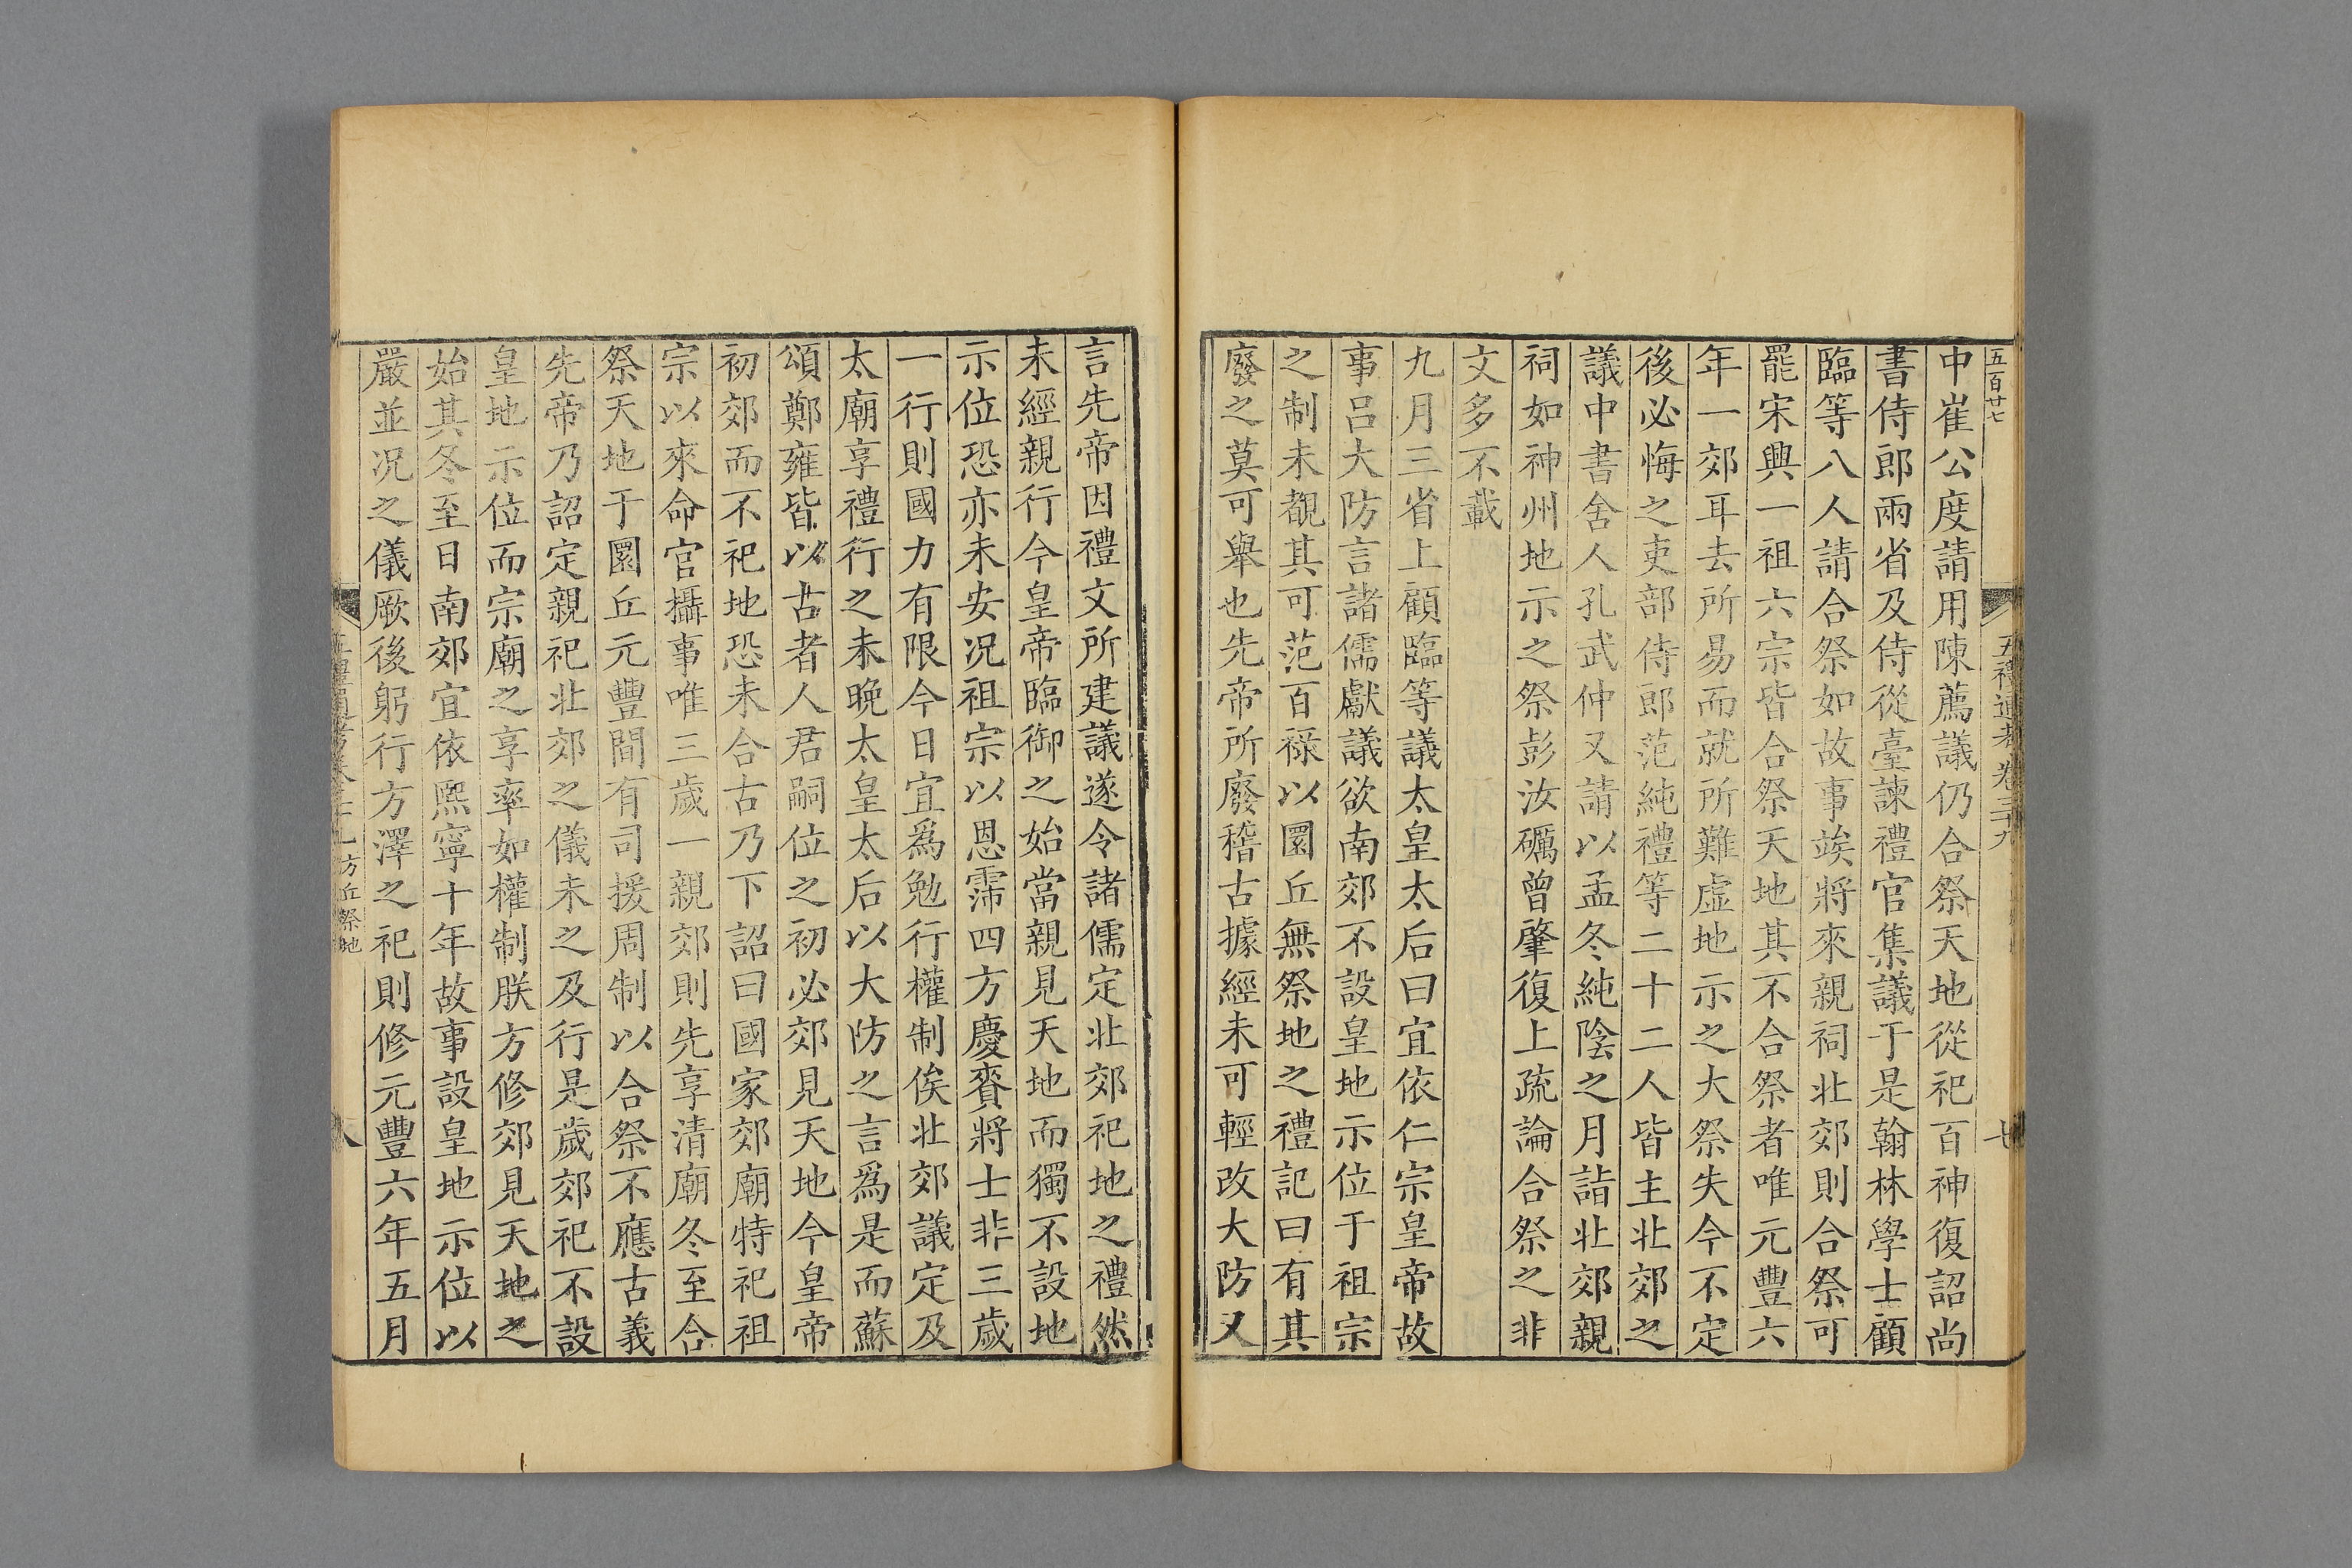 五百廿七
五禮通考卷三十九
七
中崔公度請用陳薦議仍合祭天地從祀百神復詔尚
書侍郎兩省及侍從臺諫禮官集議于是翰林學士顧
臨等八人請合祭如故事竢將來親祠北郊則合祭可
罷宋興一祖六宗皆合祭天地其不合祭者唯元豐六
年一郊耳去所易而就所難虛地示之大祭失今不定
後必悔之吏部侍郎范純禮等二十二人皆主北郊之
議中書舍人孔武仲又請以孟冬純陰之月詣北郊親
祠如神州地示之祭彭汝礪曾肇復上疏論合祭之非
文多不載
九月三省上顧臨等議太皇太后曰宜依仁宗皇帝故
事呂大防言諸儒獻議欲南郊不設皇地示位于祖宗
之制未覩其可范百祿以圜丘無祭地之禮記曰有其
廢之莫可舉也先帝所廢稽古據經未可輕改大防又
言先帝因禮文所建議遂令諸儒定北郊祀地之禮然
未經親行今皇帝臨御之始當親見天地而獨不設地
示位恐亦未安況祖宗以恩霈四方慶賚將士非三歲
一行則國力有限今日宜爲勉行權制俟北郊議定及
太廟享禮行之未晚太皇太后以大防之言爲是而蘇
頌鄭雍皆以古者人君嗣位之初必郊見天地今皇帝
初郊而不祀地恐未合古乃下詔曰國家郊廟特祀祖
宗以來命官攝事唯三歲一親郊則先享清廟冬至合
祭天地于圜丘元豐間有司援周制以合祭不應古義
先帝乃詔定親祀北郊之儀未之及行是歲郊祀不設
皇地示位而宗廟之享率如權制朕方修郊見天地之
始其冬至日南郊宜依熙寧十年故事設皇地示位以
嚴並況之儀厥後躬行方澤之祀則修元豐六年五月
方丘祭地
八